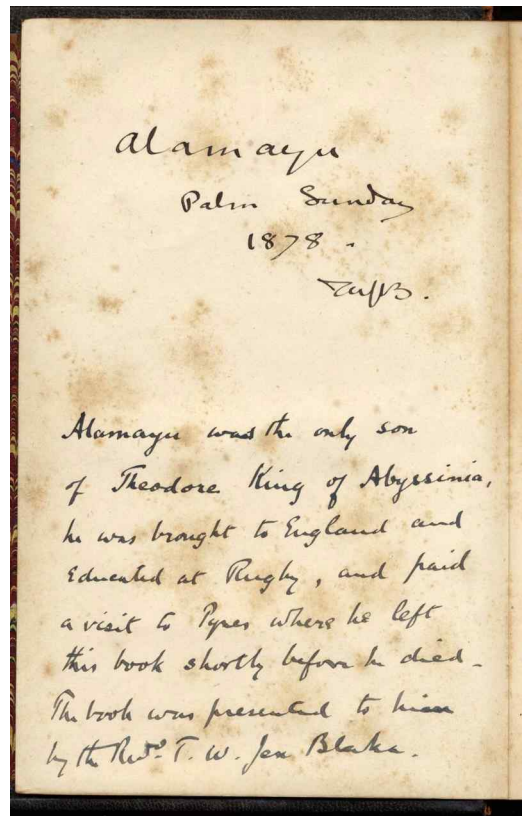 Alamayu
Palm Sunday
1878.
TWJB.
Alamayu was the only son
of Theodore King of Abyssinia,
he was brought to England and
Educated at Rugby, and paid
a visit to Pynes where he left
this book shortly before he died.
The book was presented to him
by the Revd. T. W. Jex Blake.